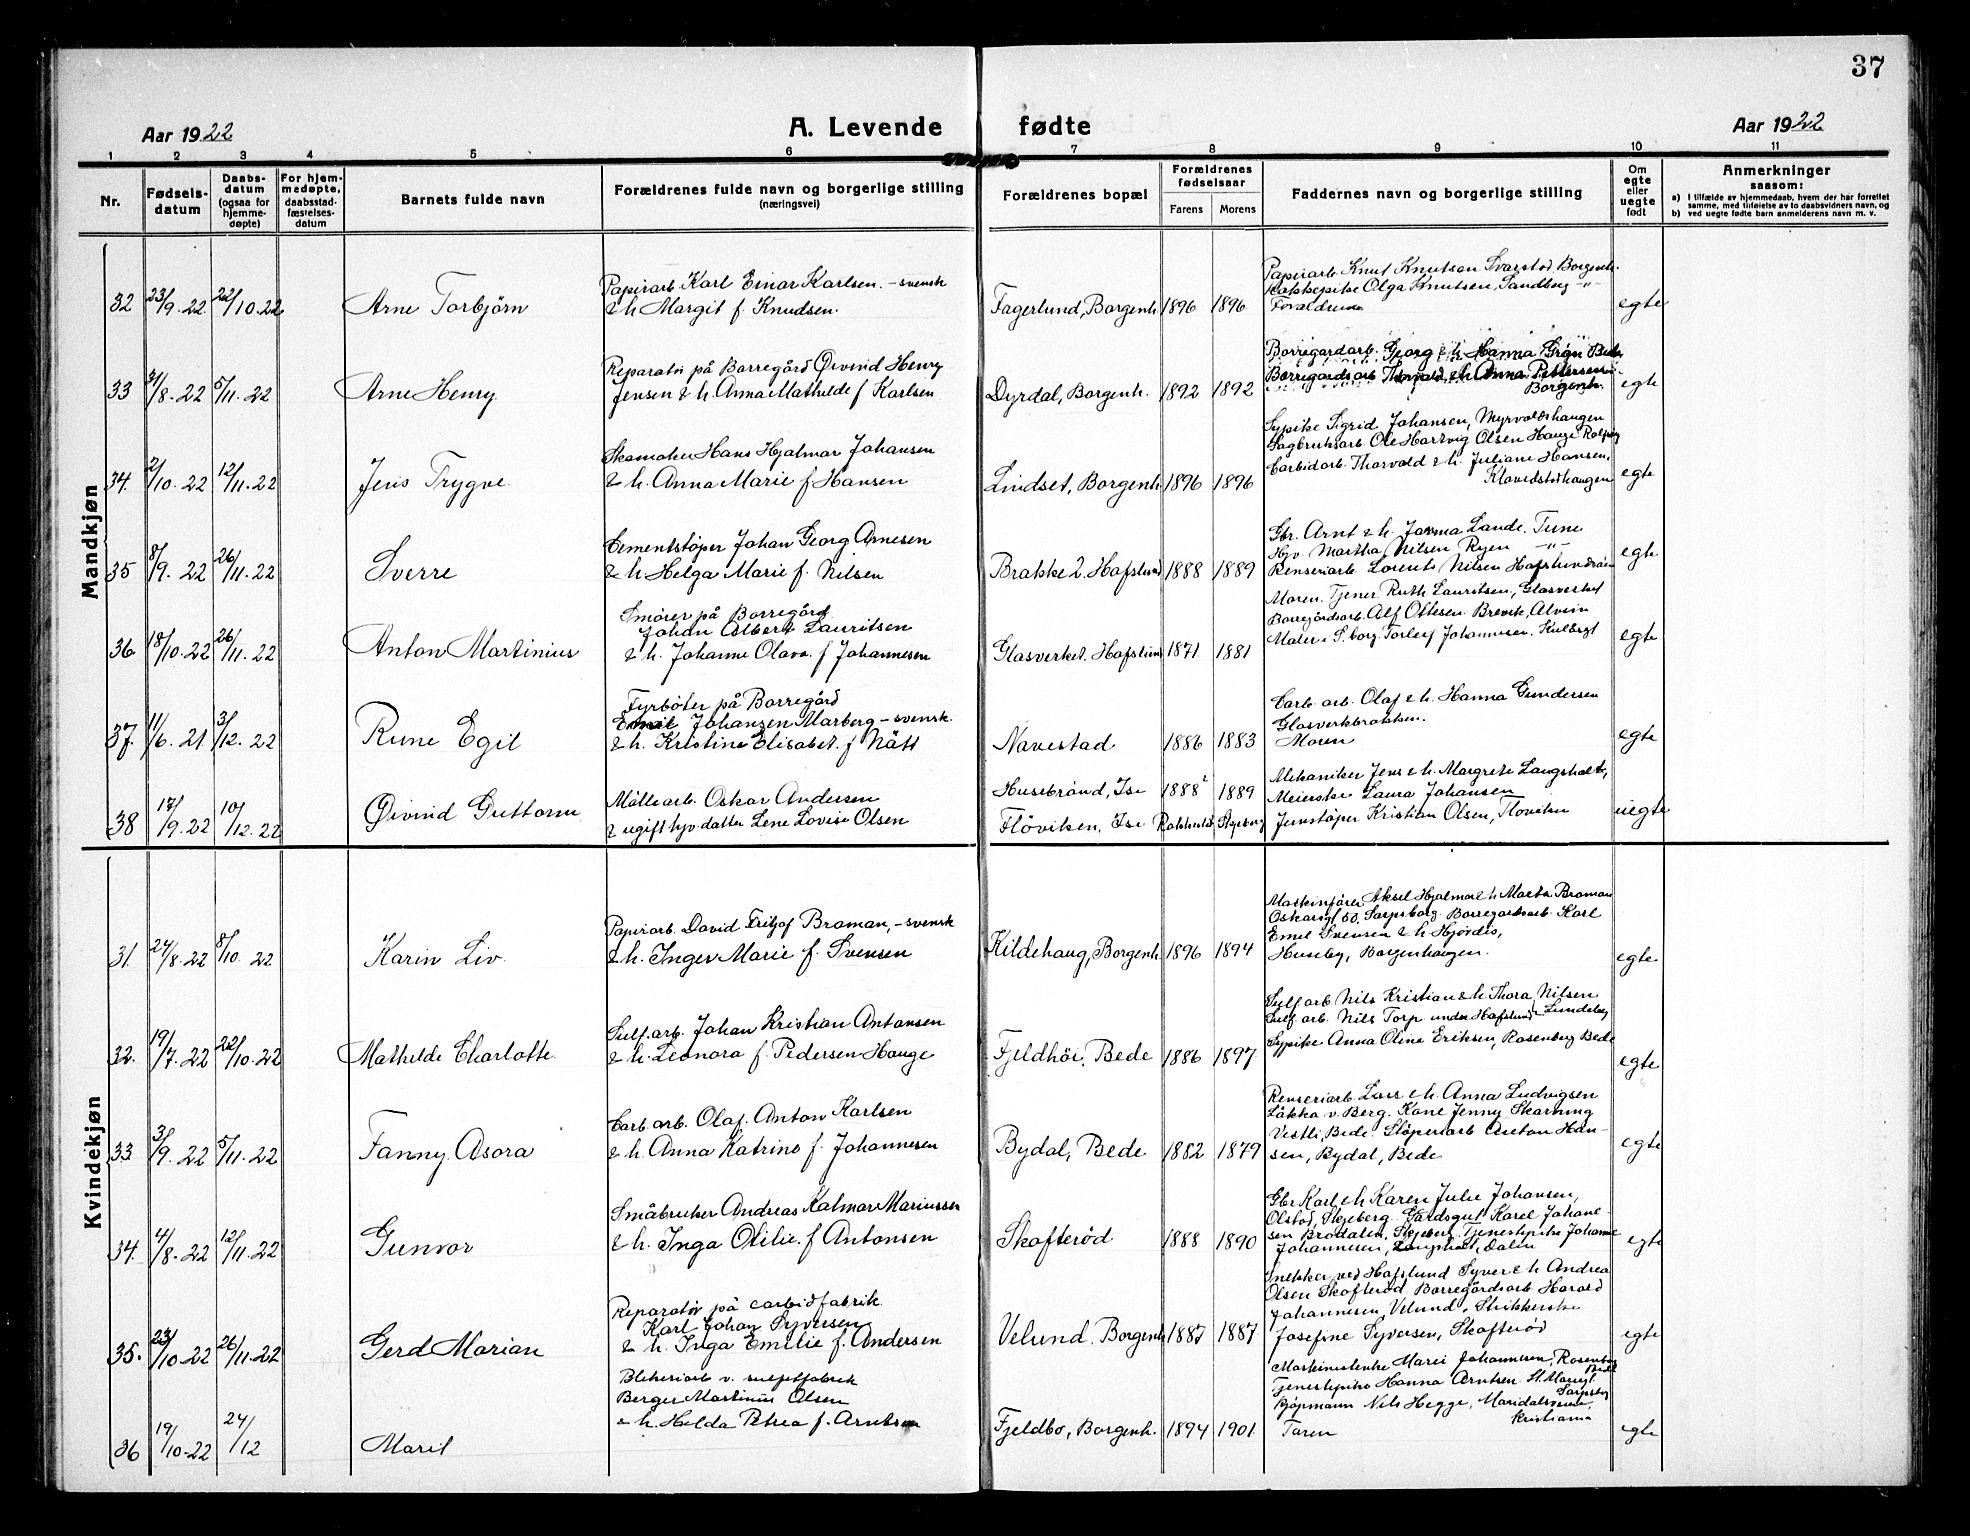 37
Aar 1922
A. Levende fødte
Aar 1922
1 2 3 4 5 6 7 8 9 10 11
Nr.
Fødsels-
datum
Daabs-
datum
(ogsaa for
hjemme-
døpte)
For hjem-
medøpte,
daabsstad-
fæstelses-
datum
Barnets fulde navn
Forældrenes fulde navn og borgerlige stilling
(næringsvei)
Forældrenes bopæl
Forældrenes
fødselsaar
Farens Morens
Faddernes navn og borgerlige stilling
Om
egte
eller
uegte
født
Anmerkninger
saasom:
a) I tilfælde av hjemmedaab, hvem der har forrettet
samme, med tilføielse av to daabsvidners navn, og
b) ved uegte fødte barn anmelderens navn m. v.
Mandkjøn
32 23/9. 22 22/10. 22 Arne Torbjörn
Papirarb. Karl Einar Karlsen. - svensk
& h. Margit f. Knudsen.
Fagerlund, Borgenh. 1896 1896
Papirarb. Knut Knutsen Svarstad, Borgenh.
Olga Knutsen, Sandbog -"-
Foraldrene
egte
33 31/8. 22 5/11. 22 Arne Henry
Reparatör på Borregård Øivind Henry
Jensen & h. Anna Mathilde f. Karlsen
Dyrdal, Borgenh. 1892 1892
Borregardarb. Georg & h. Hanna Grøn Bede
Borregårdsarb. & h. Anna Pettersen
Borgenh.
egte
34. 2/10. 22 12/11. 22 Jens Trygve
Skomaker Hans Hjalmar Johansen
& h. Anna Marie f. Hansen
Lindset, Borgenh. 1896 1896
Sypike Sigrid Johansen, Myrvoldshaugen
Sagbruksarb. Ole Hartvig Olsen Hauge
Carbidarb. Thorvald & h. Juliane Hansen.
Klavestadhaugen
egte
35 8/9. 22 26/11. 22 Sverre
Cementstöper Johan Georg Arnesen
& h. Helga Marie f. Nilsen
Brakke 2. Hafslund 1888 1889
Gbr. Arnt & h. Lande. Tune
Hgv. Martha Nilsen Ryen -"-
Renseriarb. Lorents Nilsen
egte
36. 18/10. 22 26/11. 22 Anton Martinius
Smörer på Borregård
Johan Albert Lauritsen
& h. Johanne Olava f. Johannesen
Glasverket. Hafslund 1871 1881
Moren. Tjener Ruth Lauritsen, Glasverket
Borregårdsarb. Alf Ottesen. Brevik, Alvim
Maler i S.borg Torleif Johannesen. Kulbergt
egte
37. 11/6. 21 3/12. 22 Rune Egil
Fyrböter på Borregård
Emil Johansen Marberg - svensk.
& h. Kristine Elisabet f. Nätt
Navestad 1886 1883
Carb. arb. Olaf & h. Hanna Gundersen
Glasverkbrakken.
Moren
egte
38 17/9. 22 10/12. 22 Øivind Guttorm
Möllearb. Oskar Andersen
& ugift hyv. datter Lene Lovise Olsen
Husebrånd, Ise 1888 1889
Flöviken, Ise Rakkestad Skjeberg
Mekaniker Jens & h. Margrete Langsholt,
Meierske Laura Johansen
Jernstøper Kristian Olsen, Floviken
uegte
Kvindekjøn
31. 24/8. 22 8/10. 22 Karin Liv
Papirarb. David Fritjof Broman, - svensk
& h. Inger Marie f. Svensen
Kildehaug, Borgenh. 1896 1894
Maskinförer Aksel Hjalmar & h. Marta Broman
Oskarsgt. 50, Sarpsborg. Borregardsarb. Karl
Emil Svensen & h. Hjördis,
Huseby, Borgenhaugen.
egte
32. 19/7. 22 22/10. 22 Mathilde Charlotte
Sulf. arb. Johan Kristian Antonsen
& h. Leonora f. Pedersen Hauge
Fjeldhöi, Bede 1886 1897
Sulf. arb. Nils Kristian & h. Thora Nilsen
Sulf. arb. Nils Torp under Hafslund Lundeby
Sypike Anna Oline Eriksen, Rosenberg Bede
egte
33 3/9. 22 5/11. 22 Fanny Asora
Carb. arb. Olaf Anton Karlsen
& h. Anna Katrine f. Johannesen
Bydal, Bede 1882 1879
Renseriarb. Lars & h. Anna Ludvigsen
Låkka v. Berg. Kone Jenny Skarning
Vestli, Bede. Stöperiarb. Anton Han-
sen, Bydal, Bede
egte
34. 4/8. 22 12/11. 22 Gunvor
Småbruker Andreas Kalmar Mariussen
& h. Inga Otilie f. Antonsen
Skofteröd 1888 1890
Gbr. Karl & h. Karen Julie Johansen,
Olstad, Skjeberg. Gårdsgut Karel Johane-
sen Brodalen, Skjeberg. Tjenestepike Johanne
Johannesen, Langholt, Dalen
egte
35. 23/10. 22 26/11. 22 Gerd Marian
Reparatör på carbidfabrik
Karl Johan Syversen
& h. Inga Emilie f. Andersen
Velund. Borgenh. 1887 1887
Snekker ved Hafslund Syver & h. Andrea
Olsen Skofteröd. Borregårdsarb. Harald
Johannesen, Velund. Strikkerske
Josefine Syversen, Skofteröd
egte
36 19/10. 22 24/12 Marit
Blekeriarb. v. sulfitfabrik
Berger Martinius Olsen
& h. Helda Petrea f. Arntsen
Fjeldbo, Borgenh. 1894 1901
Maskinistenke Marie Johannesen, Rosenberg
Bede
Tjenestepike Hanna Arntsen. St. Mariegt.
Sarpsbg
Kjöpmann Nils Hegge, Maridalsveien,
Kristiania
Faren
egte